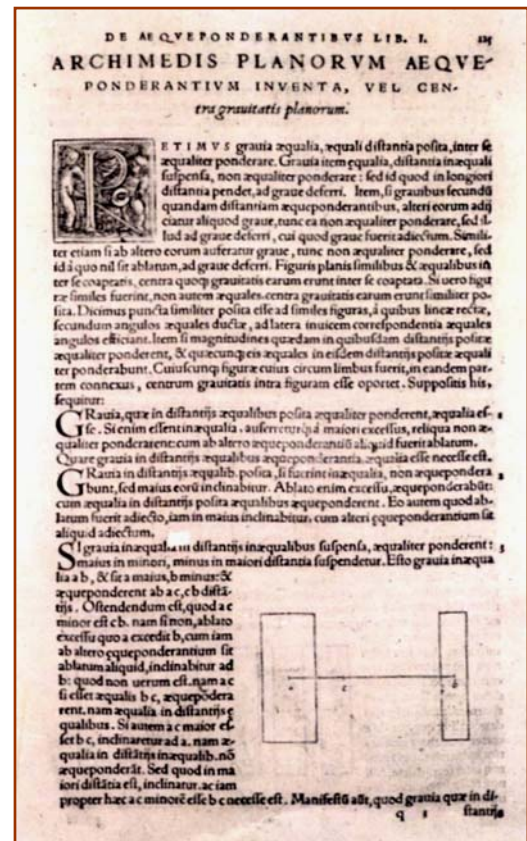 DE AEQVEPONDERANTIBVS LIB. I. 125
ARCHIMEDIS PLANORVM AEQVE-
PONDERANTIVM INVENTA, VEL CEN-
tra grauitatis planorum.
PETIMVS grauia æqualia, æquali distantia posita, inter se
æqualiter ponderare. Grauia item ęqualia, distantia inæquali
suspensa, non æqualiter ponderare: sed id quod in longiori
distantia pendet, ad graue deferri. Item, si grauibus secundũ
quandam distantiam æqueponderantibus, alteri eorum adij
ciatur aliquod graue, tunc ea non æqualiter ponderare, sed il-
lud ad graue deferri, cui quod graue fuerit adiectum. Simili-
ter etiam si ab altero eorum auferatur graue, tunc non æqualiter ponderare, sed
id à quo nil sit ablatum, ad graue deferri. Figuris planis similibus & æqualibus in
ter se coaptatis, centra quoq; grauitatis earum erunt inter se coaptata. Si uero figu
ræ similes fuerint, non autem æquales, centra grauitatis earum erunt similiter po-
sita. Dicimus puncta similiter posita esse ad similes figuras, à quibus lineæ rectæ,
secundum angulos æquales ductæ, ad latera inuicem correspondentia æquales
angulos efficiant. Item si magnitudines quædam in quibusdam distantijs positæ
æqualiter ponderent, & quæcunq; eis æquales in eisdem distantijs positæ æquali
ter ponderabunt. Cuiuscunq; figuræ cuius circum limbus fuerit, in eandem par-
tem connexus, centrum grauitatis intra figuram esse oportet. Suppositis his,
sequitur:
GRauia, quæ in distantijs æqualibus posita æqualiter ponderent, æqualia es-
se. Si enim essent inæqualia, auferretur à maiori excessus, reliqua non æ-
qualiter ponderarent: cum ab altero æqueponderantiũ aliquid fuerit ablatum.
Quare grauia in distantijs æqualibus æqueponderantia, æqualia esse necesse est.
GRauia in distantijs æqualib. posita, si fuerint inæqualia, non æquepondera
bunt, sed maius eorũ inclinabitur. Ablato enim excessu, æqueponderabũt:
cum æqualia in distantijs posita æqualibus æqueponderent. Eo autem quod ab-
latum fuerit adiecto, iam in maius inclinabitur, cum alteri ęqueponderantium sit
aliquid adiectum.
SI grauia inæqualia in distantijs inæqualibus suspensa, æqualiter ponderent: 3
maius in minori, minus in maiori distantia suspendetur. Esto grauia inæqua
lia a b, & sit a maius, b minus: &
æqueponderent ab a c, c b distã-
tijs. Ostendendum est, quod a c
minor est c b. nam si non, ablato
excessu quo a excedit b, cum iam
ab altero ęqueponderantium sit
ablatum aliquid, inclinabitur ad
b: quod non uerum est. nam a c
si esset æqualis b c, æquepõdera
rent. nam æqualia in distantijs ę
qualibus. Si autem a c maior es-
set b c, inclinaretur ad a. nam æ-
qualia in distãtijs inæqualib. nõ
æqueponderãt. Sed quod in ma
iori distãtia est, inclinatur. ac iam
propter hæc a c minorẽ esse b c necesse est. Manifestũ aũt, quod grauia quæ in di-
c
q stantijs